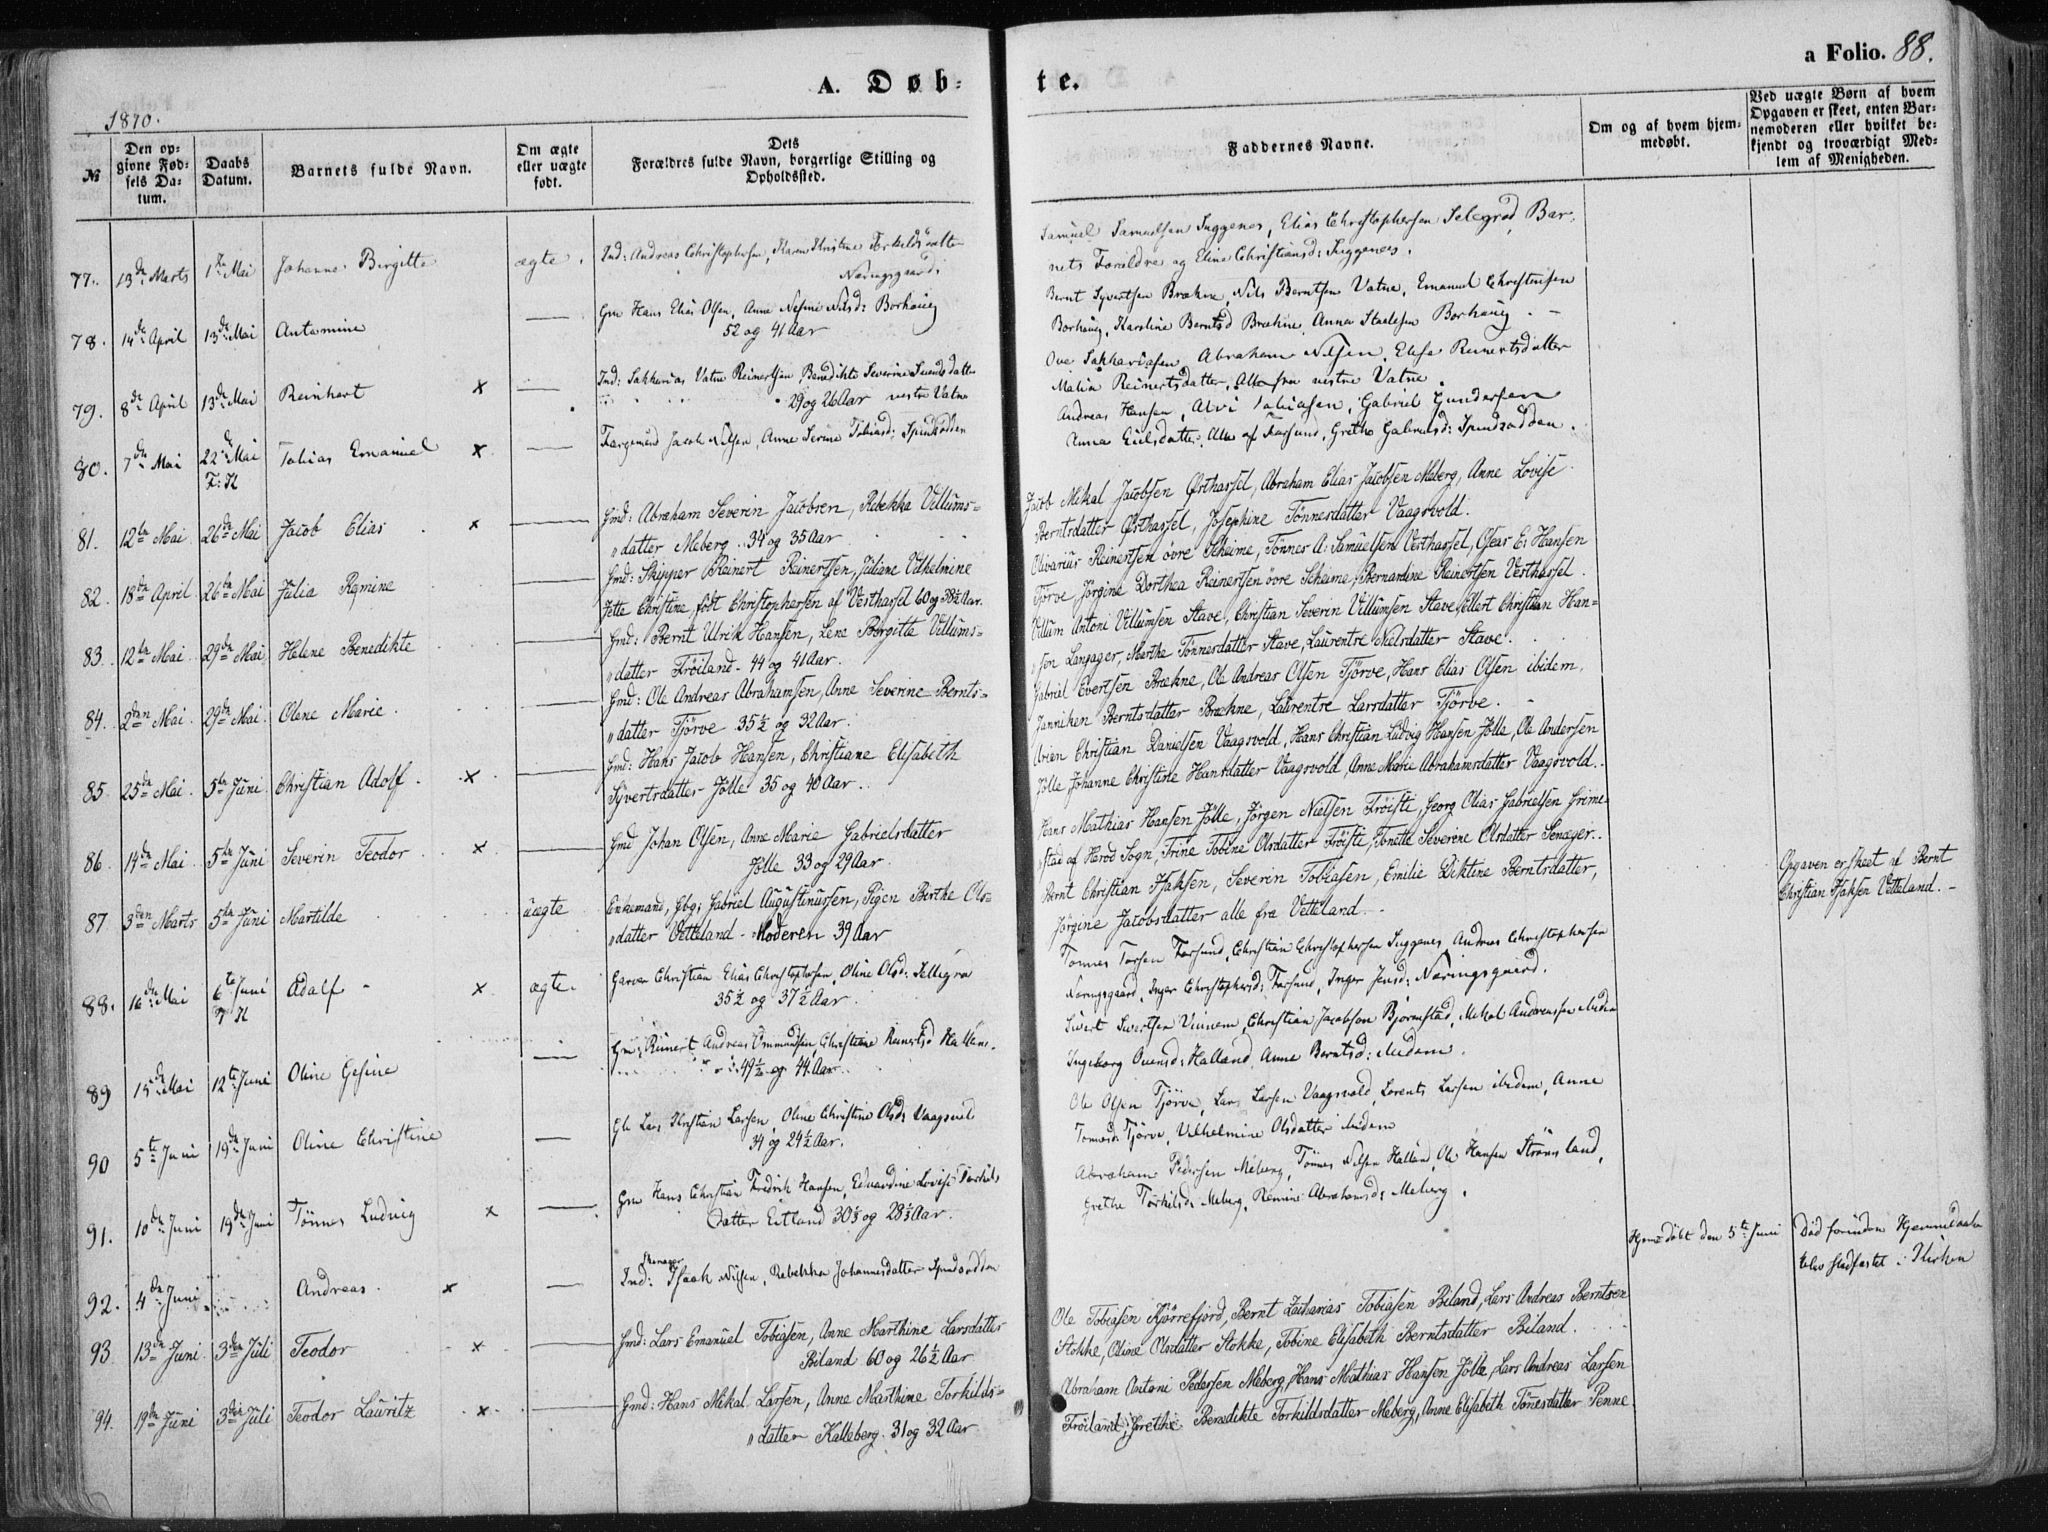 A. Døb-
te.
a Folio. 88.
1870.
№
Den op-
givne Fød-
sels Da-
tum.
Daabs
Datum.
Barnets fulde Navn.
Om ægte
eller uægte
født.
Dets
Forældres fulde Navn, borgerlige Stilling og
Opholdssted.
Faddernes Navne.
Om og af hvem hjem-
medøbt.
Ved uægte Børn af hvem
Opgaven er skeet, enten Bar-
nemoderen eller hvilket be-
kjendt og troværdigt Med-
lem af Menigheden.
77. 13de Marts 1ste Mai Johanne Birgitte ægte. Ind: Andreas Christophersen, Karen Kristine Torkildsdatter
Næringsgaard:
Samuel Samuelsen Tuggenes, Elias Christophersen Selegrod, Bar-
nets Forældre og Eline Christiansd: Tuggenes.
78. 14de April 13de Mai Antomine — Gm Hans Elias Olsen, Anne Nilsd: Borhaug
52 og 41 Aar
Bernt Syvertsen Brækne, Nils Berntsen Vatne, Emanuel Christensen
Borhaug, Karoline Berntsd Brækne, Anna Borhaug. —
79. 8de April 13de Mai Reinhart × — Ind: Sakkarias Vatne Reinertsen, Benedikte Severine Svendsdatter
29 og 26 Aar vestre Vatne
Ove Sakkariasen, Abraham Nilsen, Elise Reinertsdatter
Malin Reinertsdatter, Alle fra vestre Vatne.
80. 7de Mai 22de Mai Tobias Emanuel × — Jacob Nilsen, Anne Serine Tobiasd: Spindsodden
F: K
Andreas Hansen, Tobiasen, Gabriel Gundersen
Anna Eilsdatter, Alle af Farsund, Grethe Gabrielsd: Spindsodden.
81. 12te Mai 26de Mai Jacob Elias × — Gmd: Abraham Severin Jacobsen, Rebekka Villums-
„datter Meberg. 34 og 35 Aar
Jacob Mikal Jacobsen Østhassel, Abraham Elias Jacobsen Meberg, Anne Lovise
Berntsdatter Østhassel, Josephine Tönnesdatter Vaagsvold.
82. 18de April 26de Mai Julia Regine — Gmd: Skipper Reinert Reinertsen, Juliane Vilhelmine
Jette Christine født Christophersen af Vesthassel 60 og 38½ Aar.
Olivarius Reinertsen övre Skeime, Tönnes A: Samuelsen Vesthassel, Osear E: Hansen
Tjörve, Jörgine Dorthea Reinertsen övre Skeime, Bernardine Reinertsen Vesthassel.
83. 12te Mai 29de Mai Helene Benedikte — Gmd: Bernt Ulrik Hansen, Lene Birgitte Villums-
„datter Fröiland. 44 og 41 Aar.
Villum Antoni Villumsen Stave, Christian Severin Villumsen Stave, Ellert Christian Han-
„sen Langager, Marthe Tönnesdatter Stave, Laurentse Nielsdatter Stave.
84. 2den Mai 29de Mai Olene Marie — Gmd: Ole Andreas Abrahamsen, Anne Severine Bernts-
„datter Tjörve 35½ og 32 Aar.
Gabriel Evertsen Brækne, Ole Andreas Olsen Tjörve, Hans Elias Olsen ibidem,
Janniken Berntsdatter Brækne, Laurentse Larsdatter Tjörve.
85. 25de Mai 5te Juni Christian Adolf × — Gmd: Hans Jacob Hansen, Christiane Elisabeth
Syvertsdatter Jölle 35 og 40 Aar.
Arien Christian Danielsen Vaagsvold, Hans Christian Ludvig Hansen Jölle, Ole Andersen
Jölle, Johanne Christine Hansdatter Vaagsvold, Anne Marie Abrahamsdatter Vaagsvold.
86. 14de Mai 5te Juni Severin Teodor × — Gmd Johan Olsen, Anne Marie Gabrielsdatter
Jölle 33 og 29 Aar.
Hans Mathias Hansen Jölle, Jörgen Nielsen Fröisti, Georg Olias Gabrielsen Grime-
„stad af Herod Sogn, Trine Tobine Olsdatter Fröiste, Tonette Severine Olsdatter Penager.
87 3den Marts 5te Juni Martilde uægte Enkemand, Gbg: Gabriel Augustinussen, Pigen Berthe Ols-
„datter Vetteland. Moderen 39 Aar
Bernt Christian Isaksen, Severin Tobiasen, Emilie Diktine Berntsdatter,
Jörgine Jacobsdatter alle fra Vetteland.
Opgaven er skeet af Bernt
Christian Isaksen Vetteland. —
88. 16de Mai 6te Juni Adolf × ægte. Garver Christian Elias Christophersen, Oline Olsd: Sellegrod
35½ og 37½ Aar.
Tönnes Farsund, Christian Christophersen Tuggenes, Andreas Christophersen
Næringsgaard, Inger Christophersd: Farsund, Inger Jensd: Næringsgaard.
89 15de Mai 12te Juni Oline Gesine — Gm: Reinert Andreas Ommundsen, Christine Reinertsd Halland.
49½ og 44 Aar.
Sivert Sivertsen Vinnem, Christian Jacobsen Bjørnestad, Mikal Andreassen ibidem
Ingeborg Ovensd: Halland, Anne Berntsd: ibidem.
90 5te Juni 19de Juni Oline Christine — Gbr Lars Kristian Larsen, Oline Christine Olsd: Vaagsvold
34 og 24½ Aar.
Ole Olsen Tjörve, Lars Larsen Vaagsvold, Lorents Larsen ibidem, Anne
Tonnesd: Tjörve, Vilhelmine Olsdatter ibidem
91. 10de Juni 19de Juni Tönnes Ludvig × — Gm Hans Christian Fredrik Hansen, Eduardine Lovise Torkils
datter Eitland 30⅓ og 28⅓ Aar.
Abraham Pedersen Meberg, Tönnes Nilsen Halland, Ole Hansen Strömsland,
Grethe Torkilsd: Meberg, Abrahamsd: Meberg.
92. 4de Juni Andreas × — Ind: Isaak Nilsen, Rebekka Johannesdatter Spindsodden
Hjemedöbt den 5te Juni
Död forinden Hjemmedaaben
blev stadfæstet i Kirken
93 13de Juni 3die Juli Teodor × — Gmd: Lars Emanuel Tobiasen, Anne Marthine Larsdatter
Biland 60 og 26½ Aar
Ole Tobiasen Kjörrefjord, Bernt Zacharias Tobiasen Biland, Lars Andreas Berntsen
Stokke, Oline Olsdatter Stokke, Tobine Elisabeth Berntsdatter Biland.
94. 19de Juni 3die Juli Teodor Lauritz × — Gmd: Hans Mikal Larsen, Anne Marthine Torkilds-
„datter Kalleberg. 31 og 32 Aar
Abraham Antoni Pedersen Meberg, Hans Mathias Hansen Jölle, Lars Andreas Larsen
Fröiland, Grethe Benedikte Torkildsdatter Meberg, Anne Elisabeth Tönnesdatter Penne